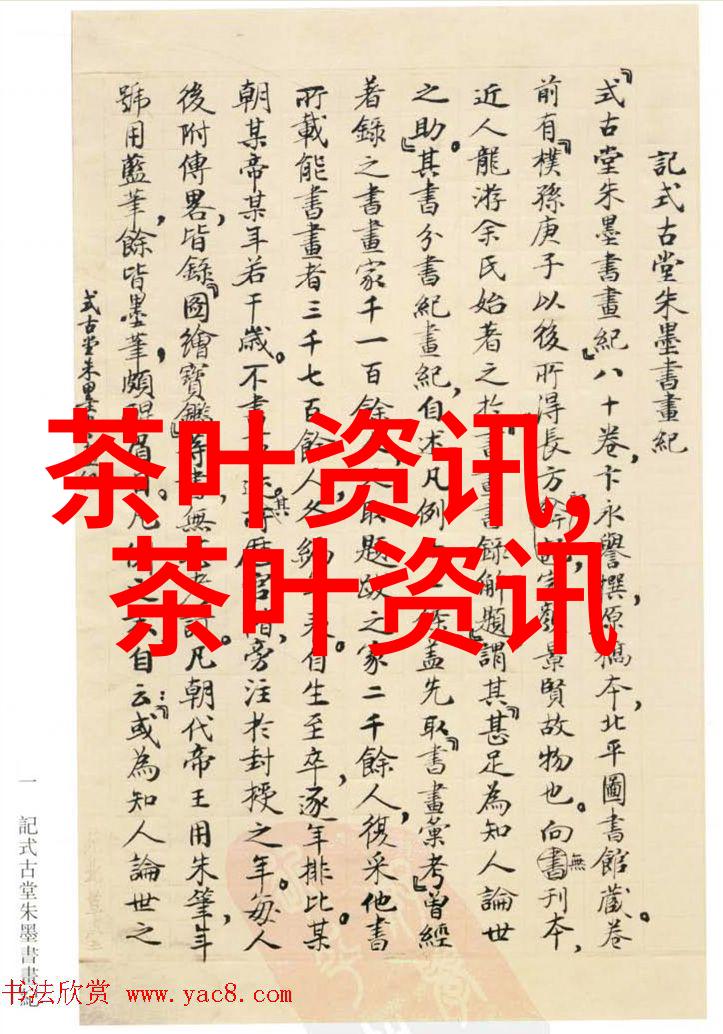 記式古堂朱墨書畫紀
『式古堂朱墨書畫紀』八十卷,卞永譽撰原稿本,北平圖書館藏。卷
前有『樸孫庚子以後所得』長方印,景賢故物也。向無刊本,
近人龍游余氏始著之於書畫書録解題,謂其『甚足為知人論世
之助。』其書分書紀畫紀,自述凡例 盖先取『書畫彙考』曾經
著錄之書畫家千一百餘人 取題跋之家二千餘人,復采他書
所載能書畫者三千七百餘人,各編年表。自生至卒,逐年排比某
朝某帝某年若干歲。不書 其所歷官階,旁注於封授之年。每人
後附傳畧,皆錄『圖繪寶鑑』等書,無 凡朝代帝王用朱筆,年
號用藍筆,餘皆墨筆,頗醒眉目。凡 自云:『或為知人論世之
式古堂朱墨書畫紀
茶叶资讯,
茶叶资讯
一 記式古堂朱墨書畫紀
书法欣赏 www.yac8.com